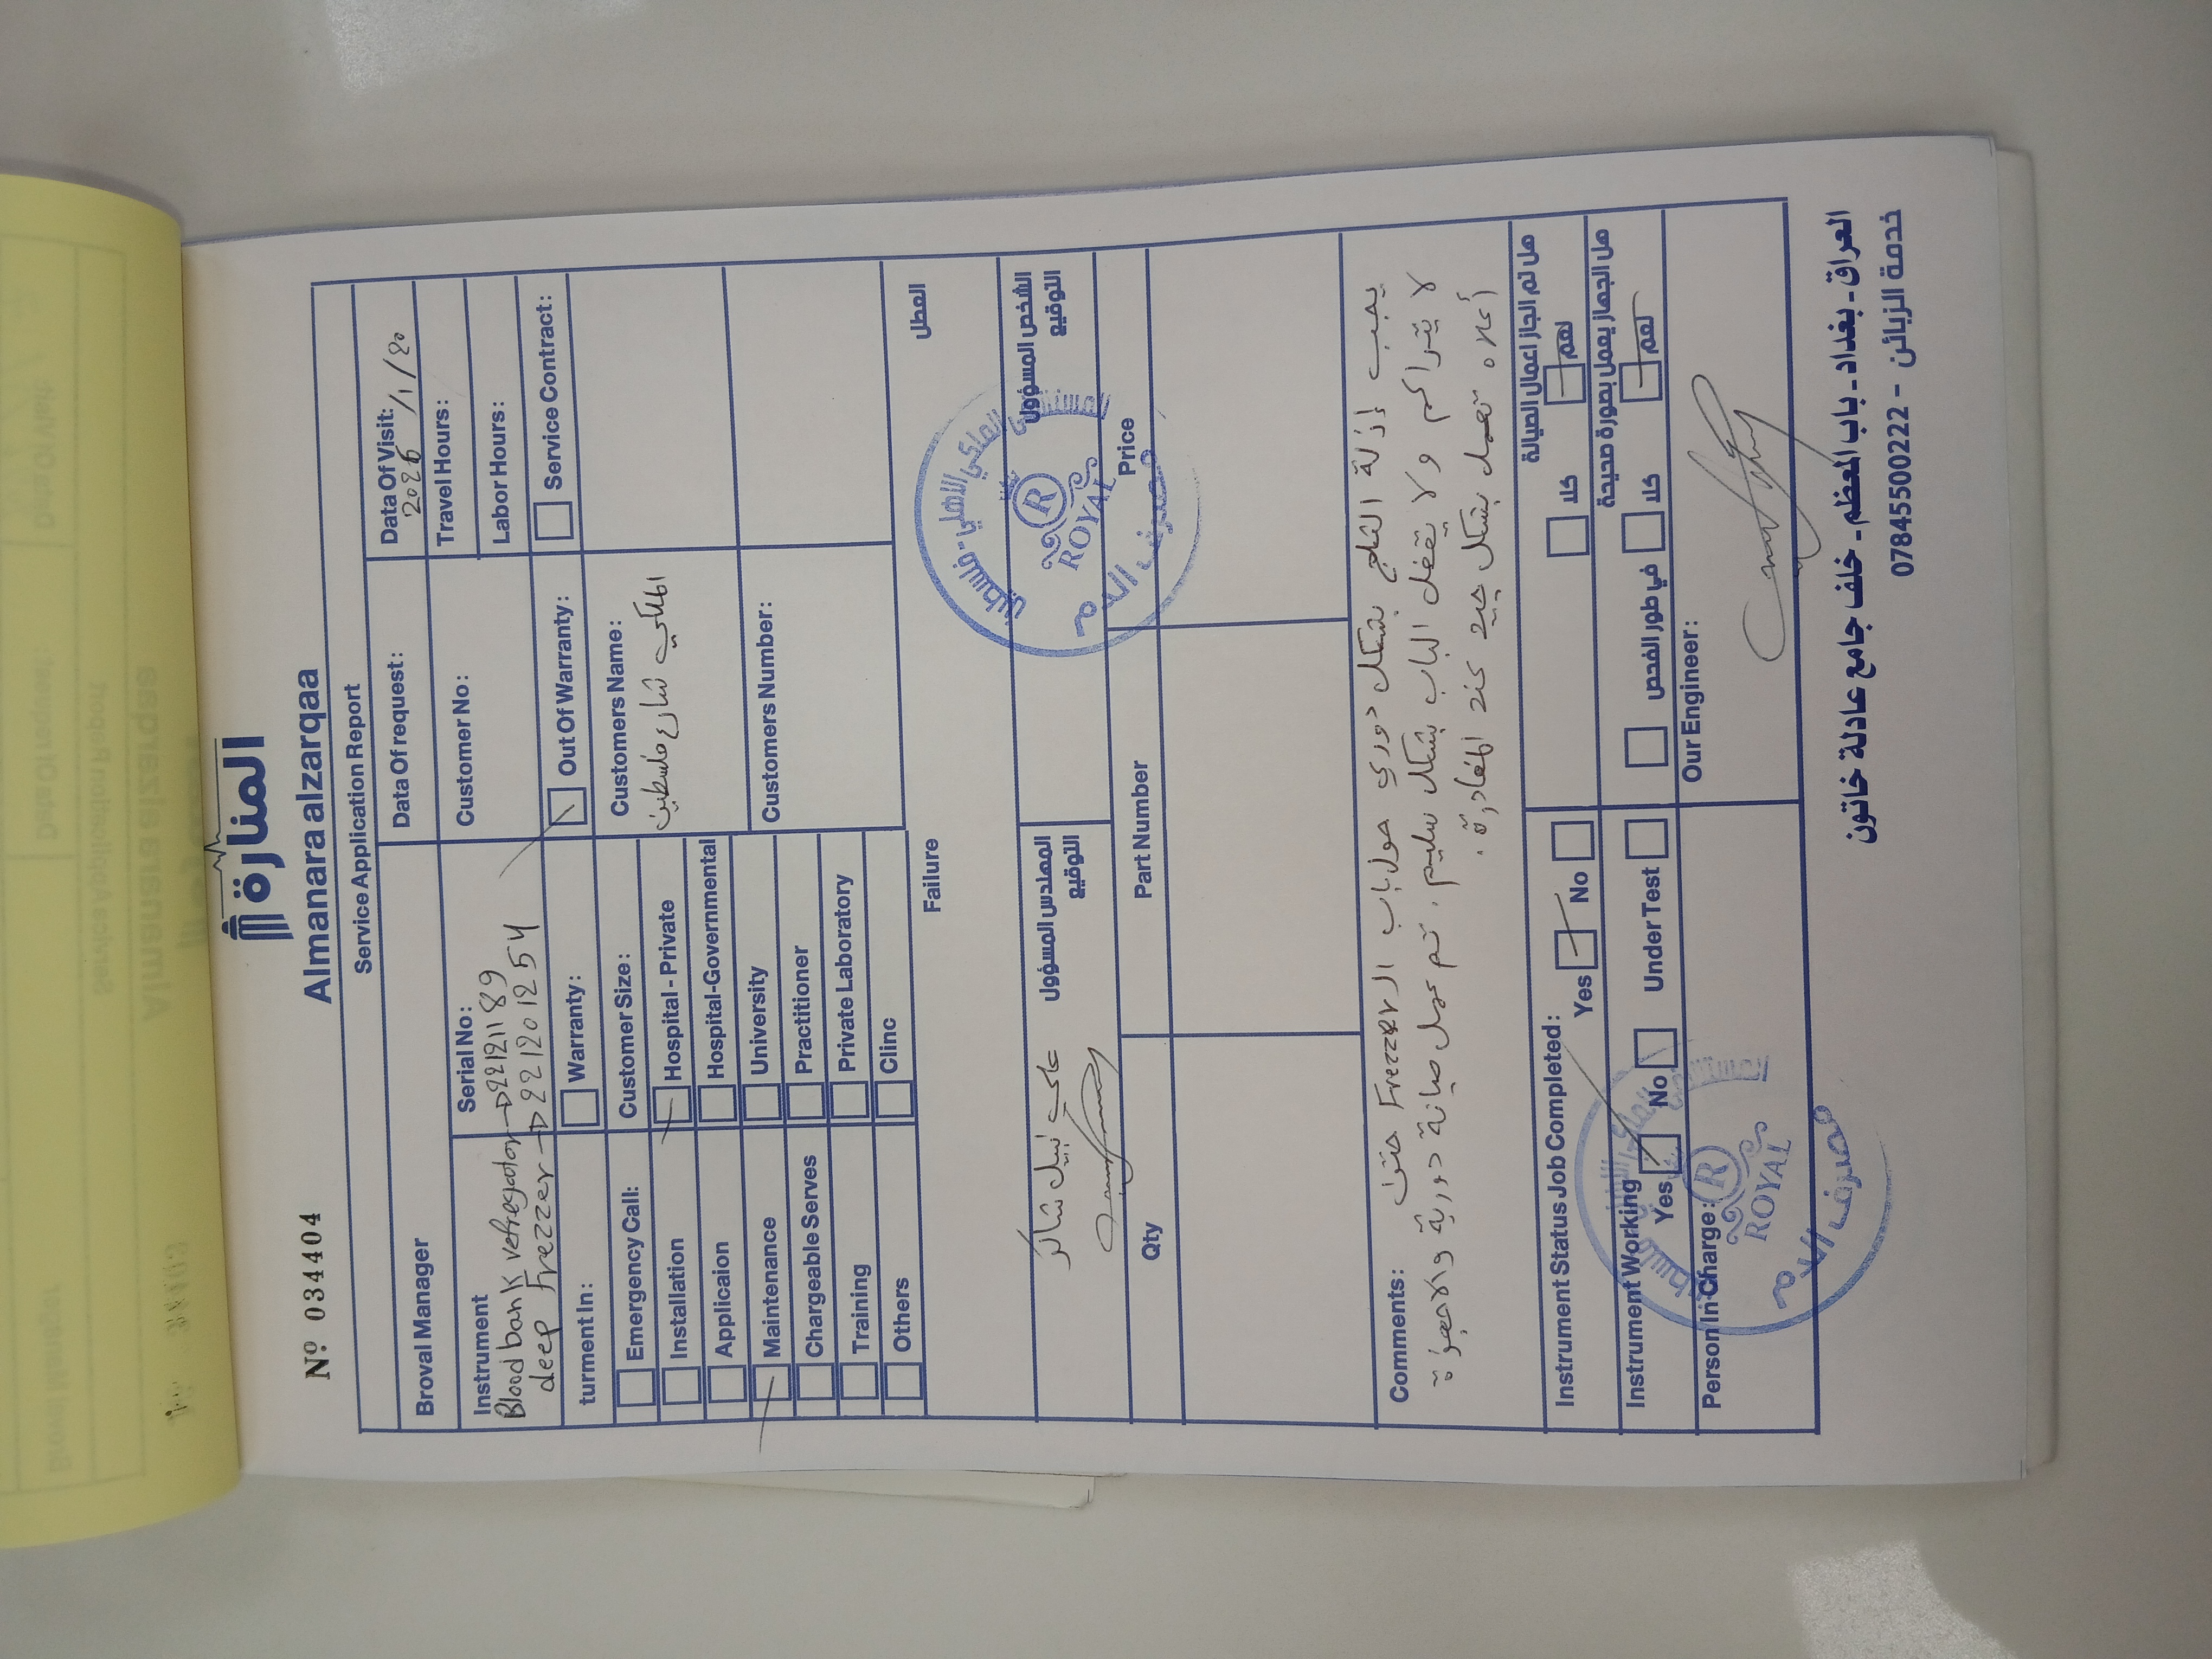 Nº 034404
المنارة
Almanara alzarqaa
Service Application Report
Broval Manager
Data Of request :
Data Of Visit:
2026 /1/20
Instrument
Serial No :
Customer No :
Travel Hours :
Blood bank refregator → 22121189
Labor Hours :
deep Frezzer → 221201254
turment In :
Warranty :
Out Of Warranty :
Service Contract :
Emergency Call:
Customer Size :
Customers Name :
Installation
Hospital - Private
الملكي شارع فلسطين
Applicaion
Hospital-Governmental
Maintenance
University
Customers Number :
Chargeable Serves
Practitioner
Training
Private Laboratory
Others
Clinc
Failure
العطل
علي نبيل شاكر
المهندس المسؤول
التوقيع
الشخص المسؤول
التوقيع
Qty
Part Number
Price
R
ROYAL
مصرف الدم
Comments :
يجب إزالة الثلج بشكل دوري حول باب الـ Frezzer حتى
لا يتراكم ولا يقفل الباب بشكل سليم. تم عمل صيانة دورية والاجهزة
أعلاه تعمل بشكل جيد عند المغادرة.
Instrument Status Job Completed :
Yes
No
هل تم انجاز اعمال الصيانة
كلا
نعم
Instrument Working
Yes
No
Under Test
هل الجهاز يعمل بصورة صحيحة
في طور الفحص
كلا
نعم
Person in Charge :
Our Engineer :
R
ROYAL
مصرف الدم
العراق - بغداد - باب المعظم - خلف جامع عادلة خاتون
خدمة الزبائن - 07845500222